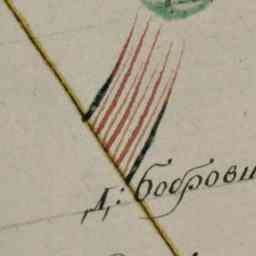 Д: Боброви